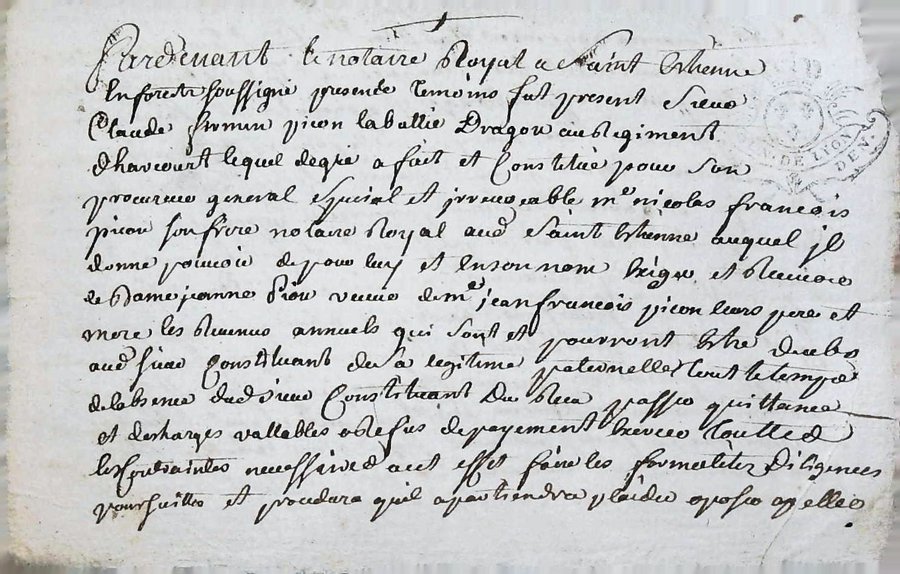 Pardevant le notaire Royal a Saint Etienne
En forest soussigné presents temoins fut present Sieur
Claude firmin picon labattie Dragon au Regiment
dharcourt lequel de gré a fait et Constitué pour Son
procureur general Special et irrevocable me nicolas françois
picon son frère notaire Royal aud Saint Etienne auquel il
donne pouvoir de pour luy et En son nom Exiger et Recevoir
de dame jeanne veuve de me jean francois picon leurs pere et
mere les Revenus annuels qui sont et pourront Etre deubs
aud sieur Constituant de Sa legitime paternelle tout le temps
de labsence dud sieur Constituant Du Receu passer quittance
et descharges vallables a Refus de payement Exercer touttes
les Contraintes necessaires a cet effet faire les formalités Diligences
poursuittes et procedures quil apartiendra plaider oposer appeller
DE LYON
DEN